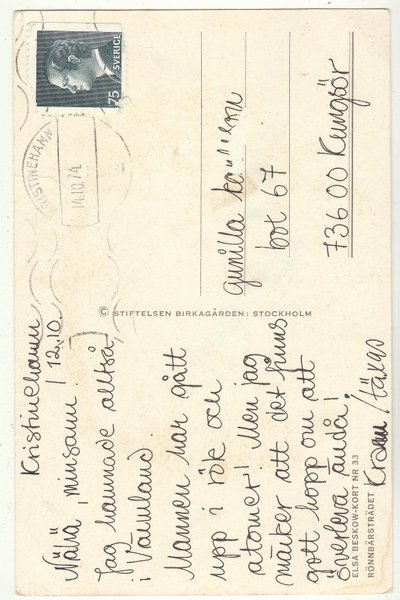 75 SVERIGE
KRISTINEHAMN
14.10.74
Kristinehamn
12.10.
Nähä, minsann!
Jag hamnade alltså
i Värmland.
Mannen har gått
upp i rök och
atomer! Men jag
märker att det finns
gott hopp om att
överleva ändå!
Kram
Gunilla
box 67
73600 Kungsör
© STIFTELSEN BIRKAGÅRDEN : STOCKHOLM
ELSA BESKOW-KORT NR 33
RÖNNBÄRSTRÄDET